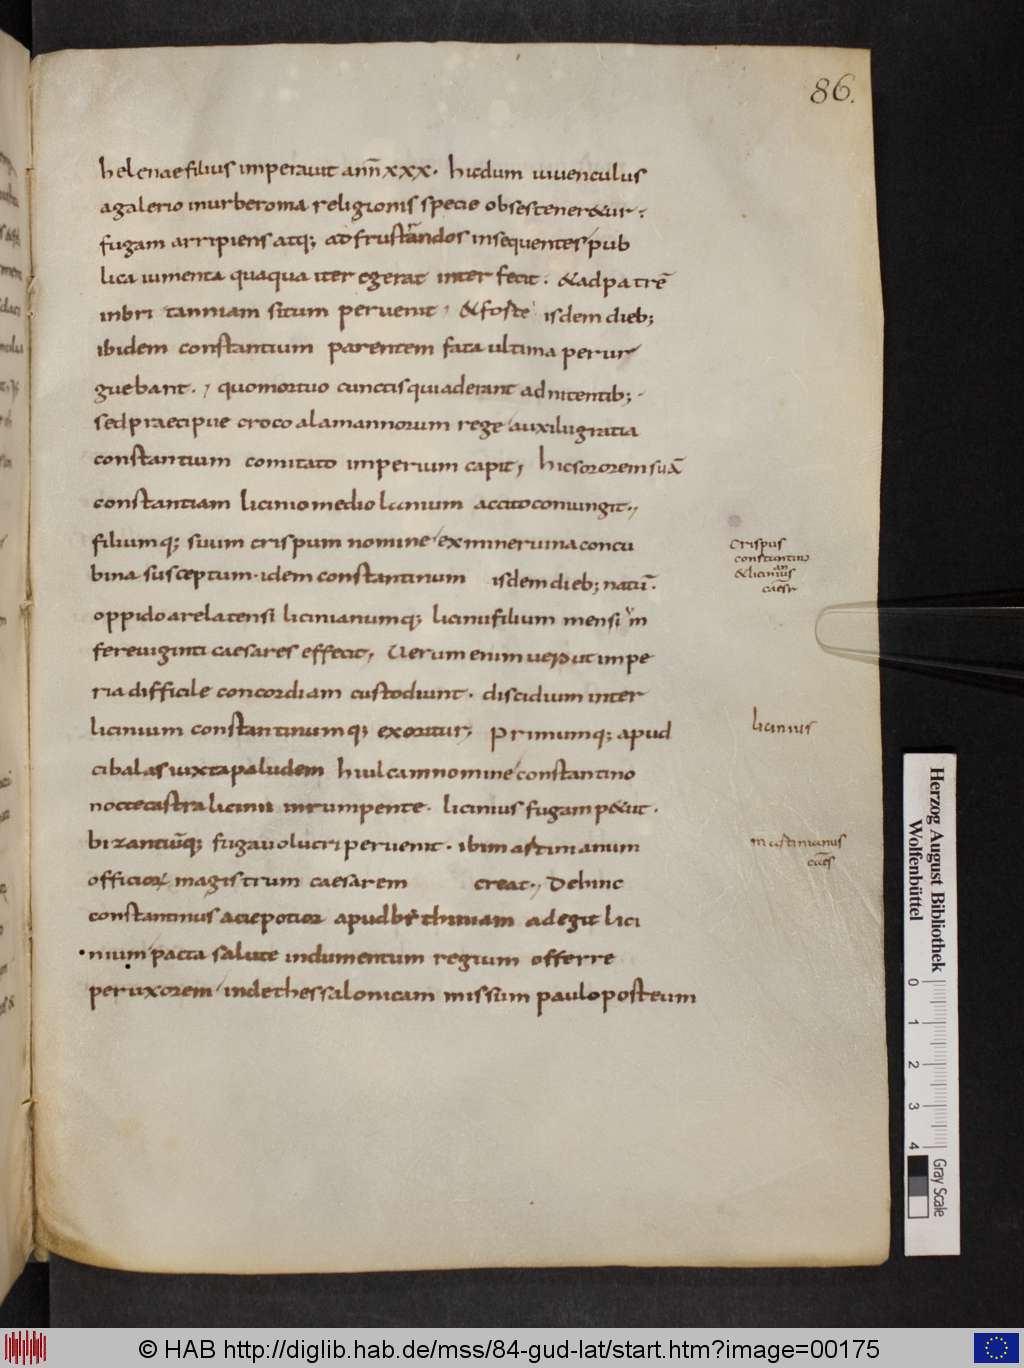 86.
helenae filius imperauit ann̄ xxx. hicdum iuuenculus
agalerio inurberoma religionis specie obsestener&ur;
fugam arripiens atq; adfrustrandos insequentes pub
lica iumenta quaqua iter egerat interfecit. &adpatrē
inbritanniam situm peruenit, &foste isdem dieb;
ibidem constantium parentem fata ultima perur
guebant., quomortuo cunctisquiaderant adnitentib;.
sedpraecipue croco alamannorum rege auxiliigratia
constantium comitato imperium capit, hicsororemsuā
constantiam licinio mediolanum accitoconiungit.,
filiumq; suum crispum nomine exmineruina concu
bina susceptum. idem constantinum isdem dieb; natū.
oppidoarelatensi licinianumq; liciniifilium mensiūm
fereuiginti caesares effecit, Uerum enim uero ut impe
ria difficile concordiam custodiunt. discidium inter
licinium constantinumq; exoritur, primumq; apud
cibalas iuxtapaludem hiulcamnomine constantino
noctecastralicinii inrumpente. licinius fugam p&iit.
bizantiūq; fugauolucri peruenit. ibimastinianum
officiorum magistrum caesarem creat., Dehinc
constantinus aciepotior apudbythiniam adegit lici
nium pacta salute indumentum regium offerre
peruxorem indethessalonicam missum pauloposteum
crispus
constantinus
&licinianius
caesr
licinius
mastinianus
caēs
Herzog August Bibliothek
Wolfenbüttel
0 1 2 3 4
Gray Scale
© HAB http://diglib.hab.de/mss/84-gud-lat/start.htm?image=00175